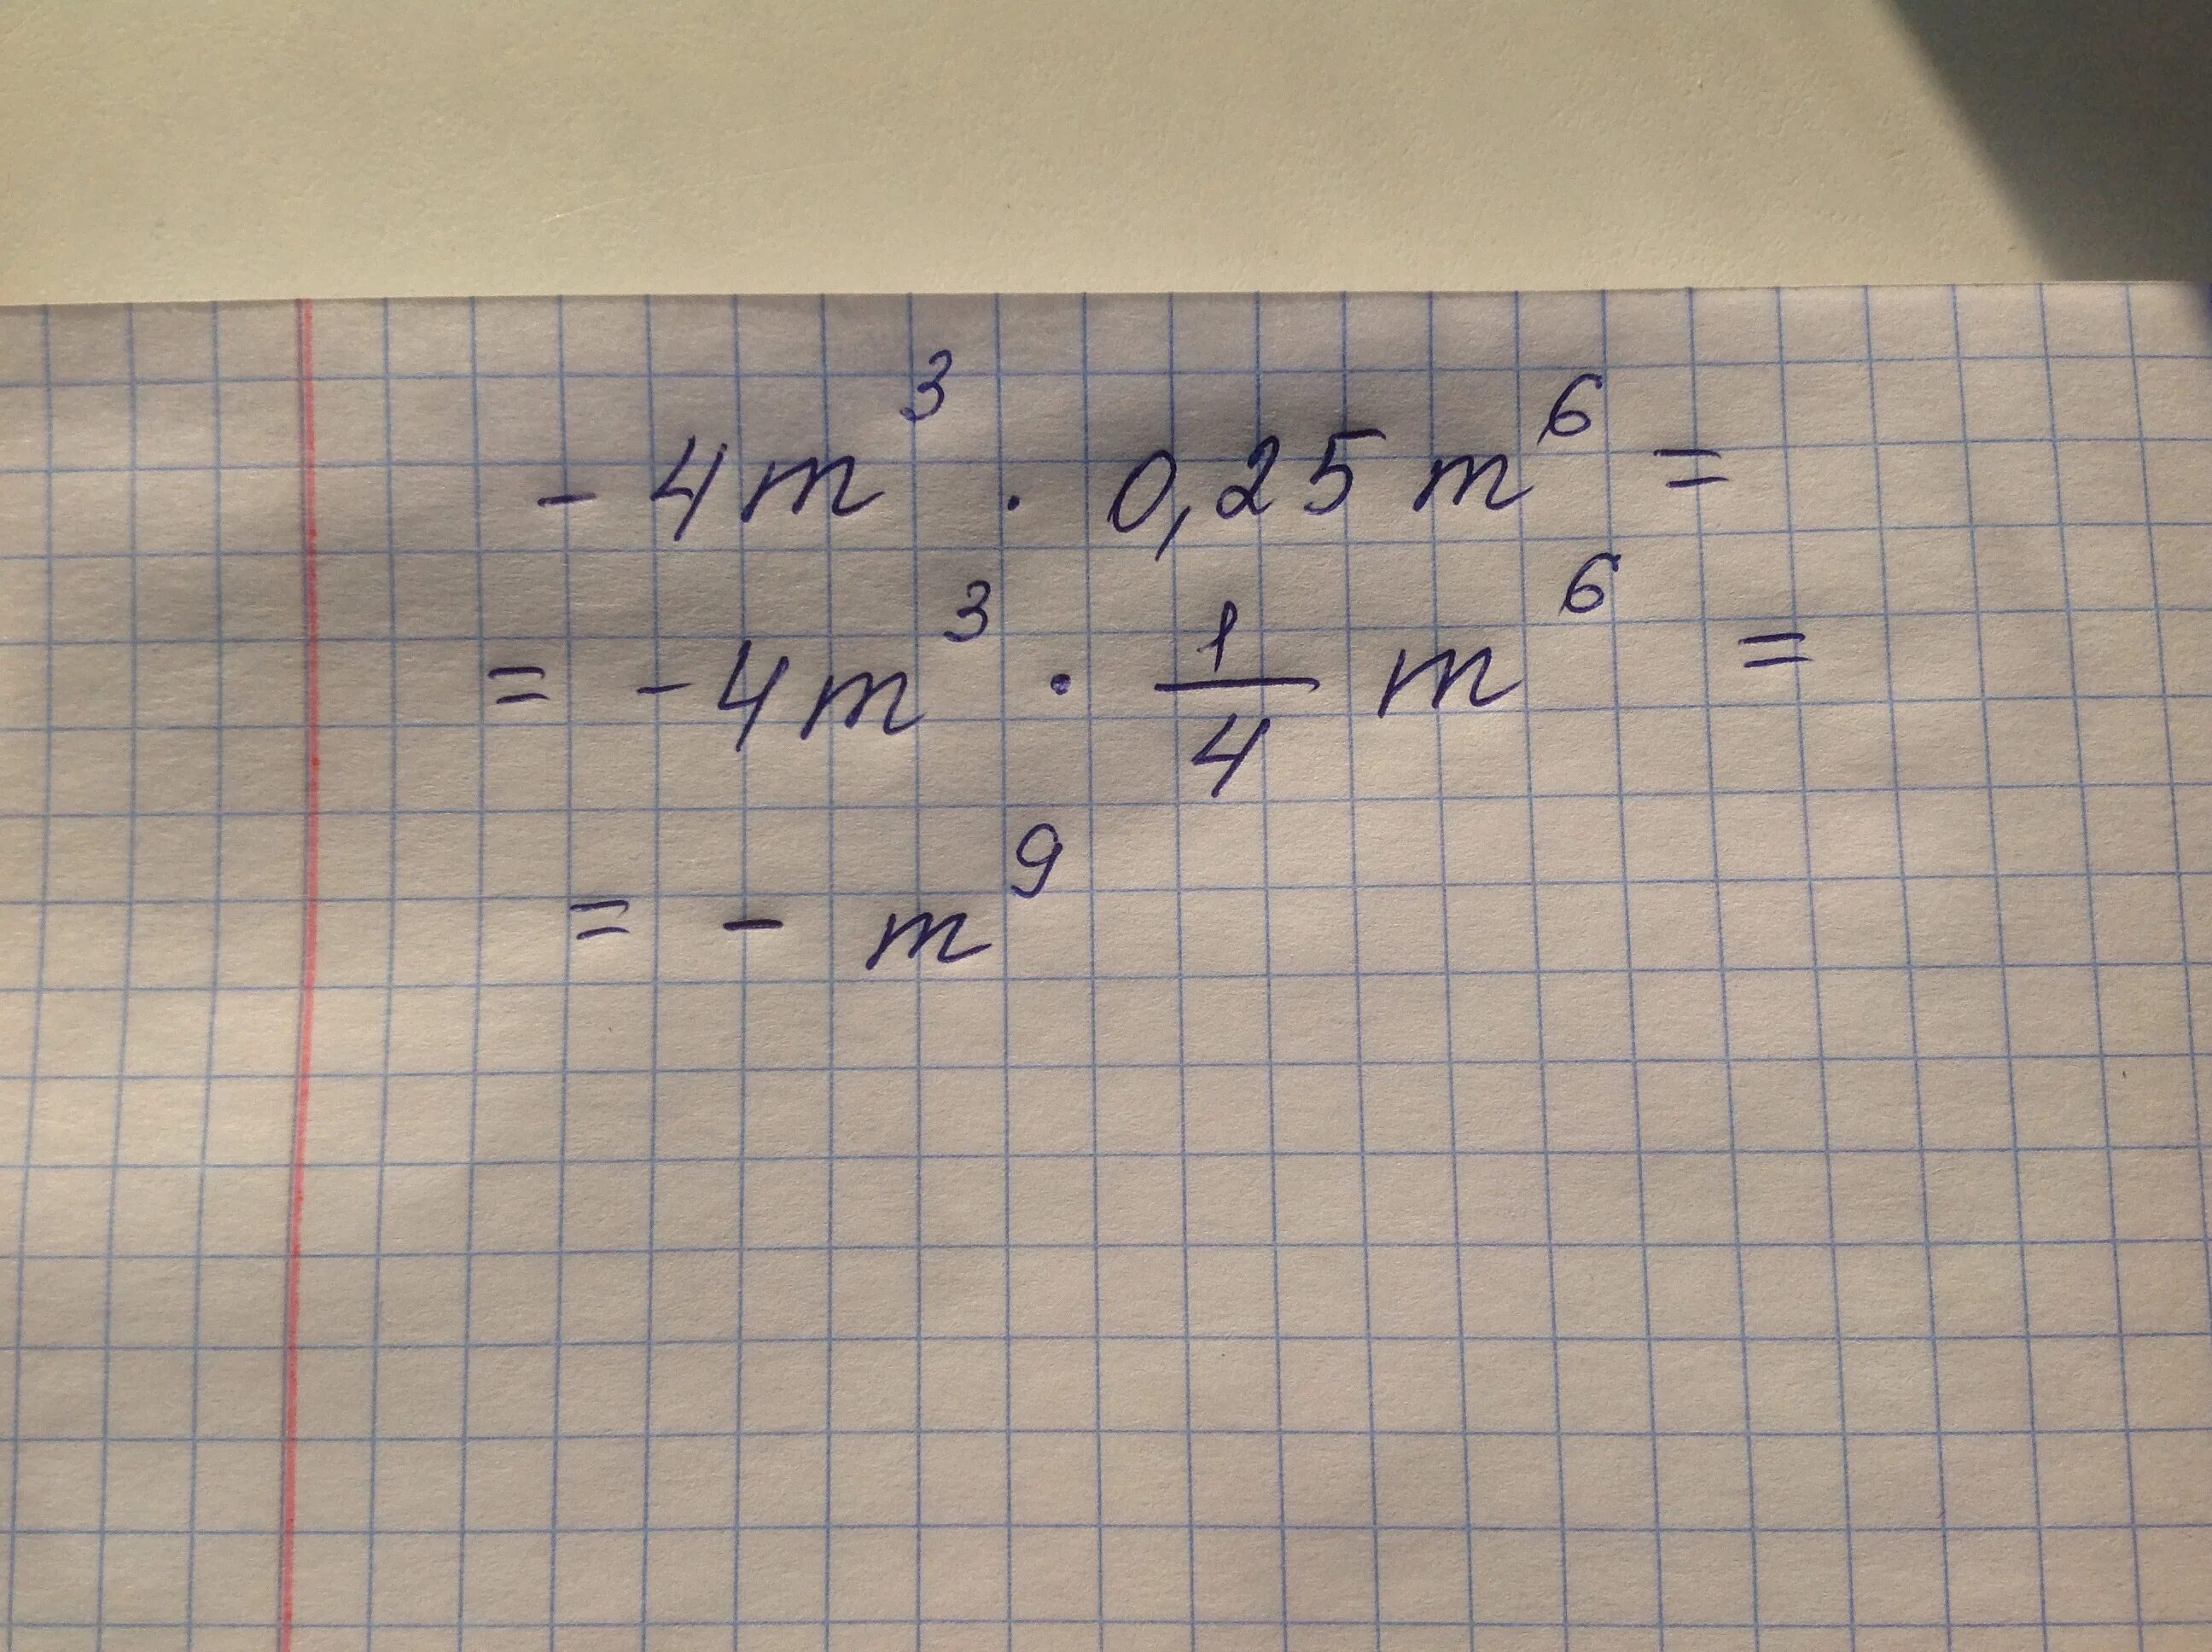 - 4m³ · 0,25 m⁶ =
= - 4m³ · 1/4 m⁶ =
= - m⁹